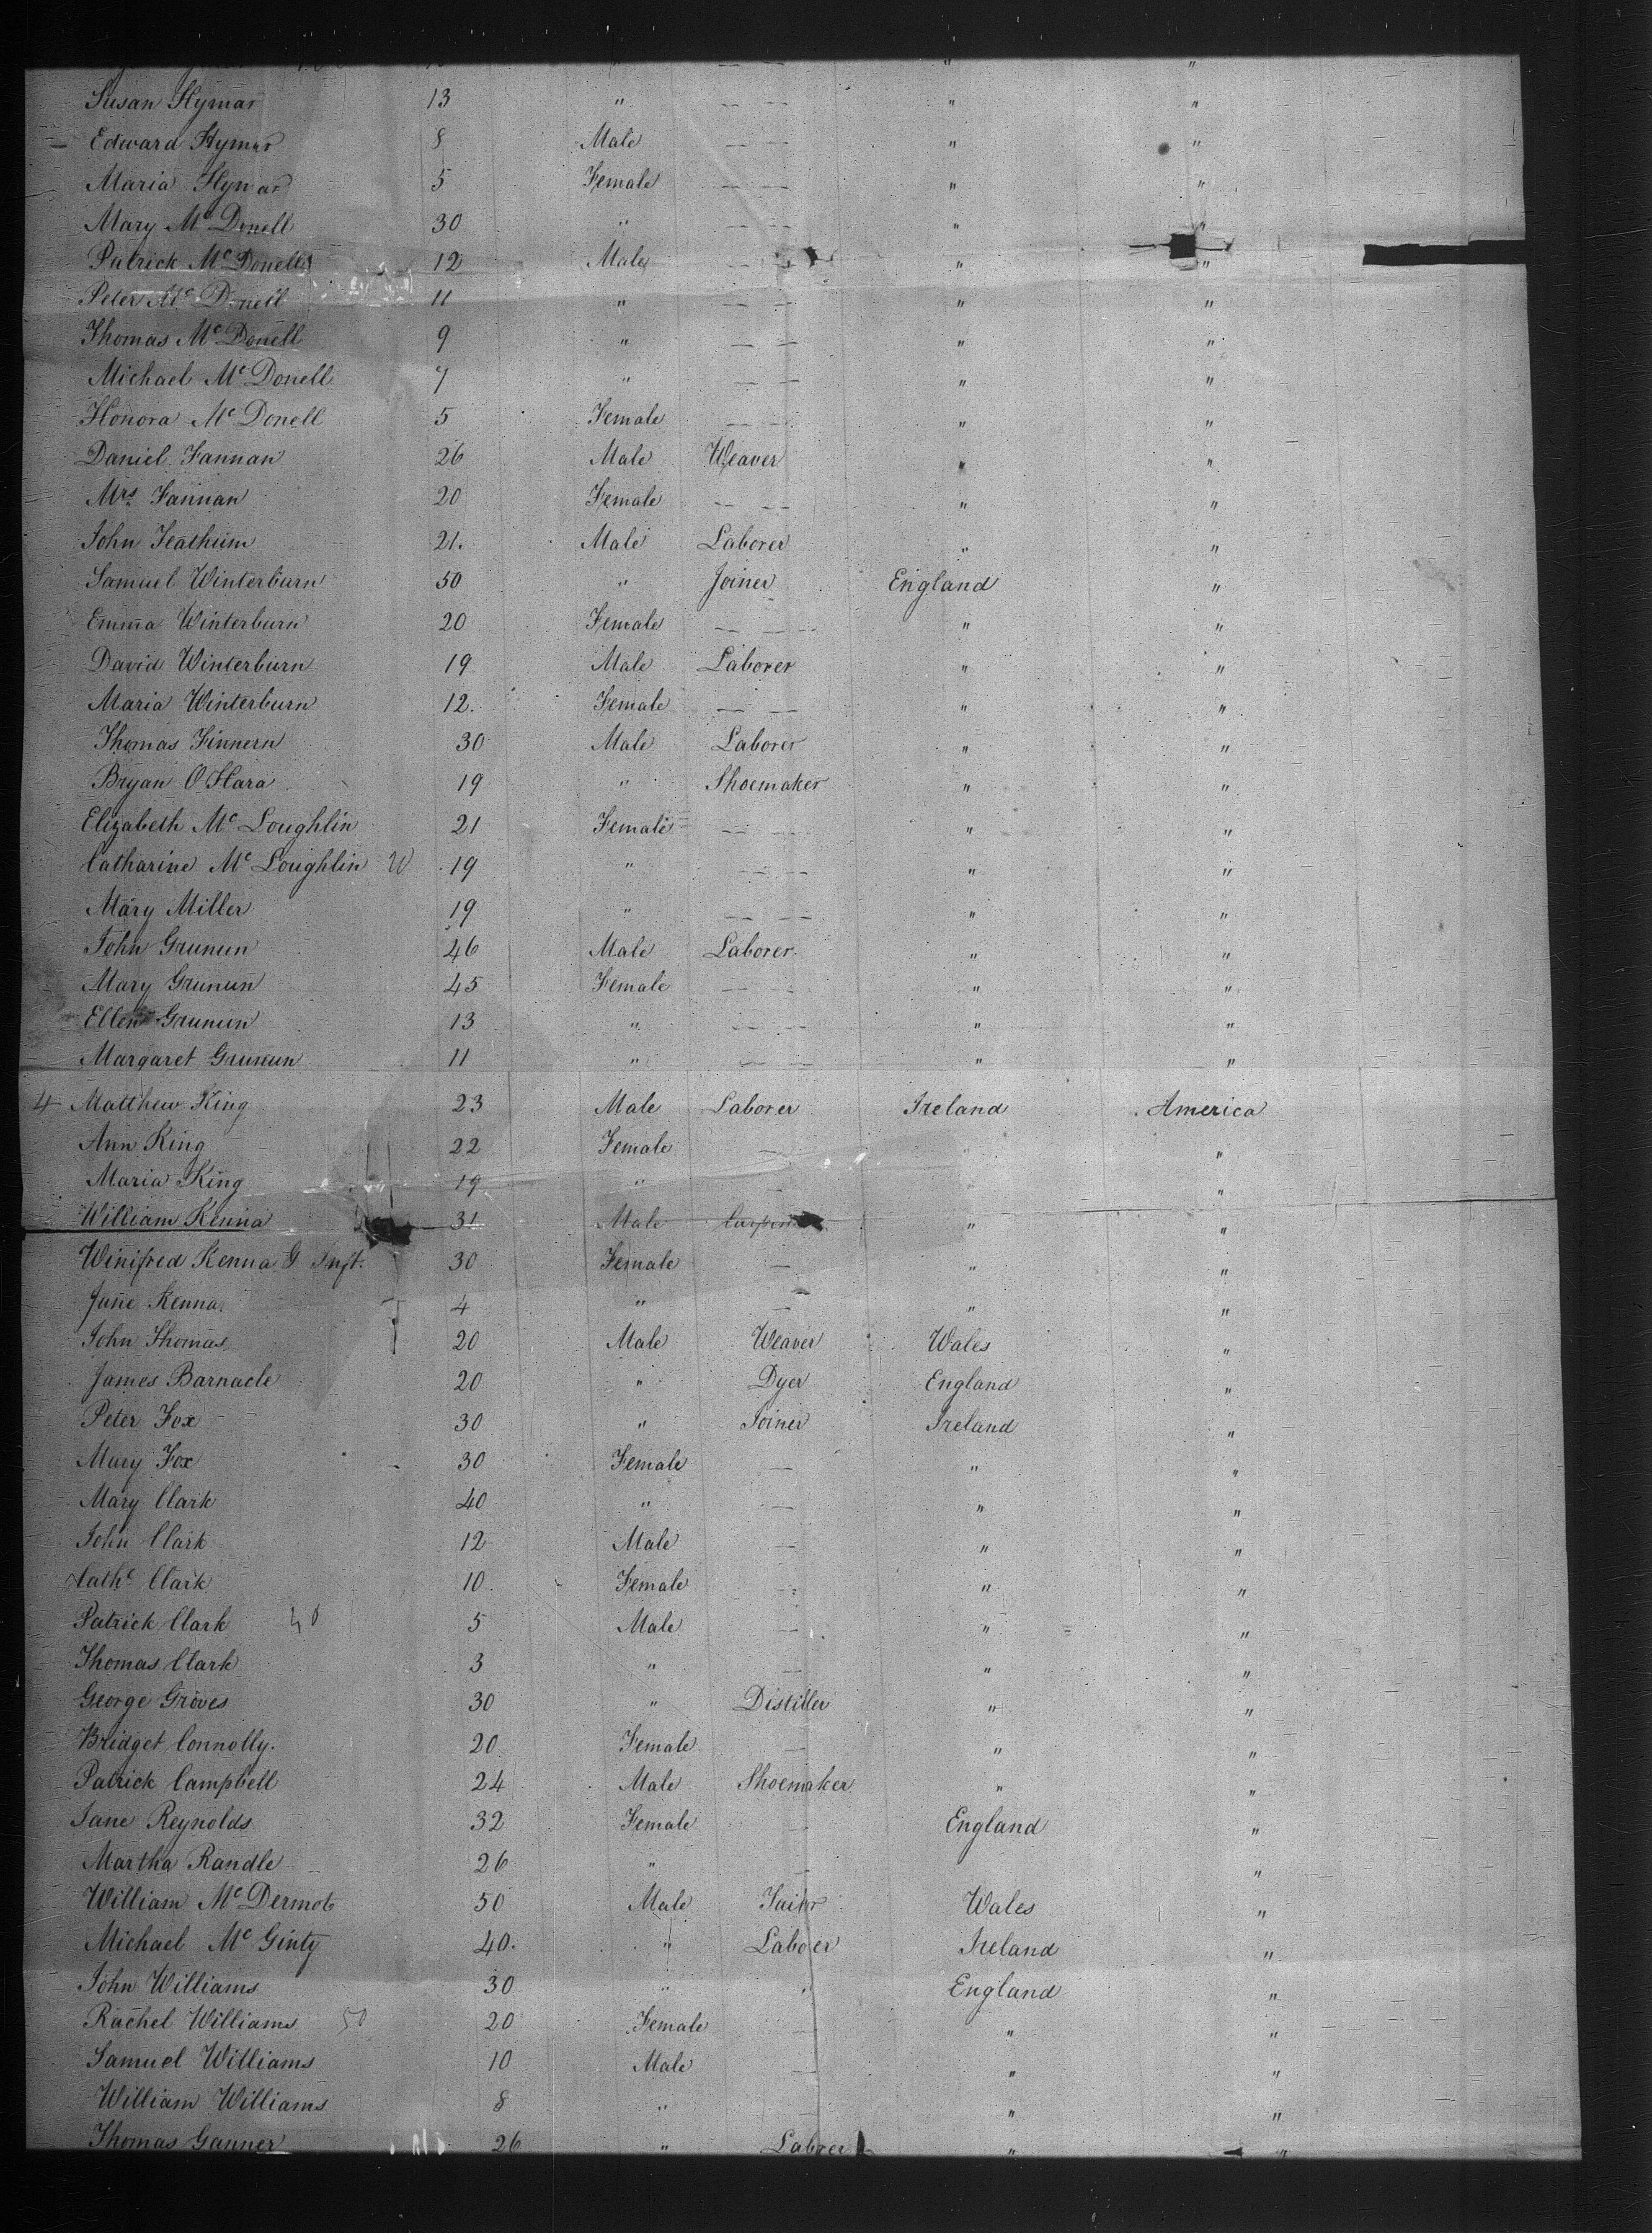 Susan Hymar 13 " — — " "
Edward Hymar 8 Male — — " "
Maria Hymar 5 Female — — " "
Mary Mc Donell 30 " — — " "
Patrick Mc Donell 12 Male — — " "
Peter Mc Donell 11 " — — " "
Thomas Mc Donell 9 " — — " "
Michael Mc Donell 7 " — — " "
Honora Mc Donell 5 Female — — " "
Daniel Fannan 26 Male Weaver " "
Mrs Fannan 20 Female — — " "
John 21. Male Laborer " "
Samuel Winterburn 50 " Joiner England "
Emma Winterburn 20 Female — — " "
David Winterburn 19 Male Laborer " "
Maria Winterburn 12. Female — — " "
Thomas Finnern 30 Male Laborer " "
Bryan O'Hara 19 " Shoemaker " "
Elizabeth Mc Loughlin 21 Female — — " "
Catharine Mc Loughlin 19 " — — " "
Mary Miller 19 " — — " "
John Grunun 46 Male Laborer " "
Mary Grunun 45 Female — — " "
Ellen Grunun 13 " — — " "
Margaret Grunun 11 " — — " "
4 Matthew King 23 Male Laborer Ireland America
Ann King 22 Female — " "
Maria King 19 " — " "
William Kenna 31 Male " "
Winifred Kenna & Inft. 30 Female — " "
Jane Kenna 4 " — " "
John Thomas 20 Male Weaver Wales "
James Barnacle 20 " Dyer England "
Peter Fox 30 " Joiner Ireland "
Mary Fox 30 Female — " "
Mary Clark 40 " — " "
John Clark 12 Male — " "
Cathe Clark 10. Female — " "
Patrick Clark 40 5 Male — " "
Thomas Clark 3 " — " "
George Groves 30 " Distiller " "
Bridget Connolly. 20 Female — " "
Patrick Campbell 24 Male Shoemaker " "
Jane Reynolds 32 Female — England "
Martha Randle 26 " — "
William Mc Dermot 50 Male Tailor Wales "
Michael Mc Ginty 40. " Laboer Ireland "
John Williams 30 " " England "
Rachel Williams 50 20 Female — " "
Samuel Williams 10 Male — " "
William Williams 8 " " "
Thomas Ganner 26 " Labrer " "